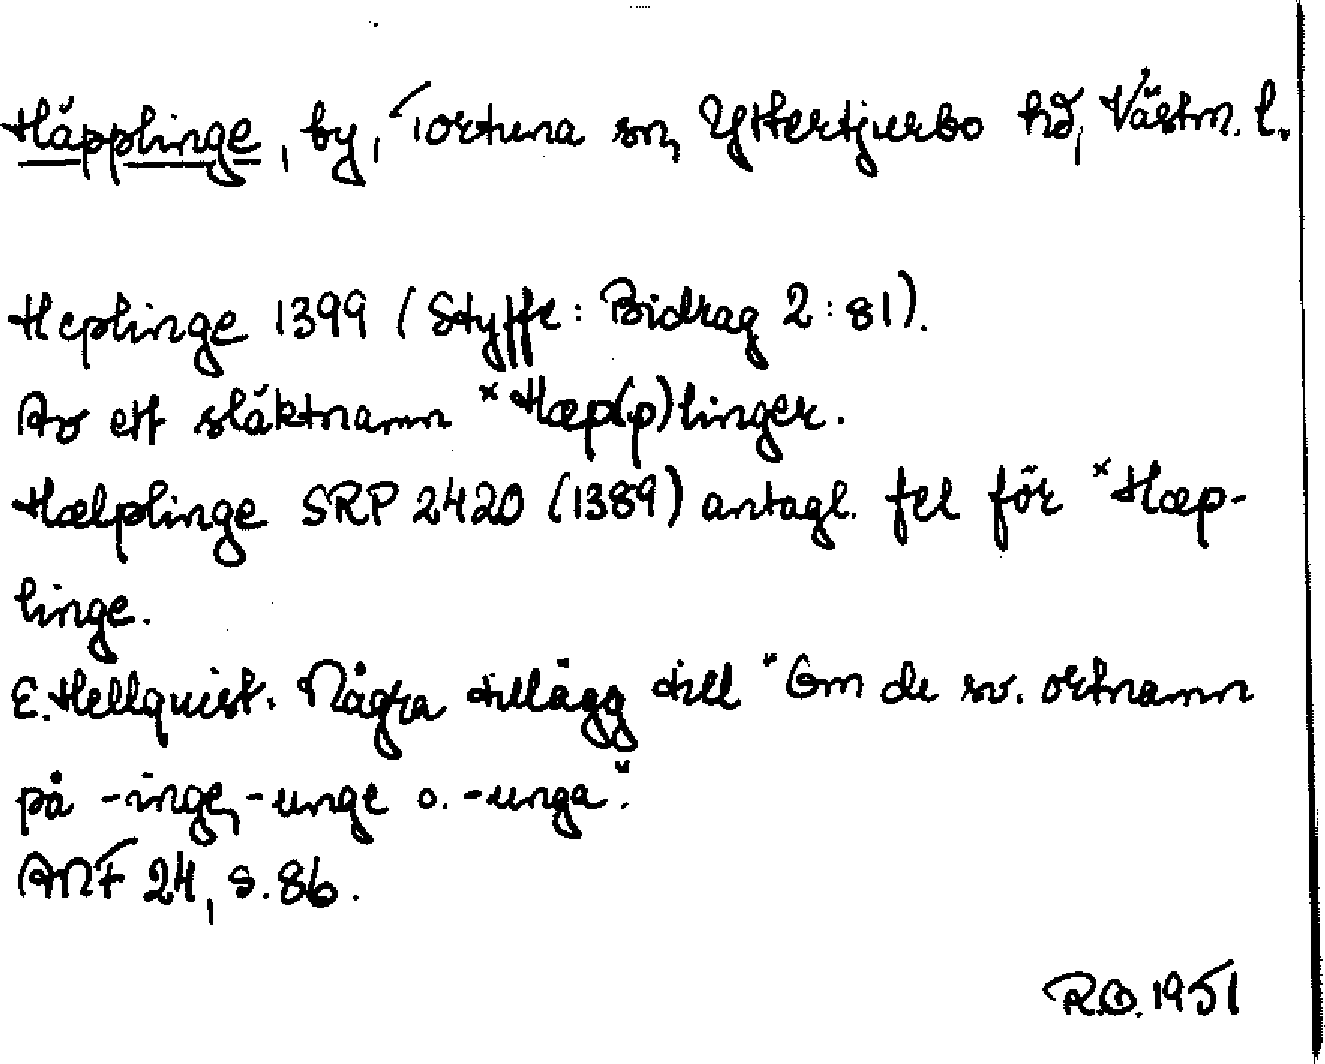 Häpplinge, by, Tortuna sn, Yttertjurbo hd, Västm. l.
Heplinge 1399 (Styffe: Bidrag 2:81).
Av ett släktnamn *Hæp(p)linger.
Hælplinge SRP 2420 (1389) antagl. fel för *Hæp-
linge.
E. Hellquist. Några tillägg till "Om de sv. ortnamn
på -inge, -unge o. -unga".
ANF 24, s. 86.
R.O. 1951